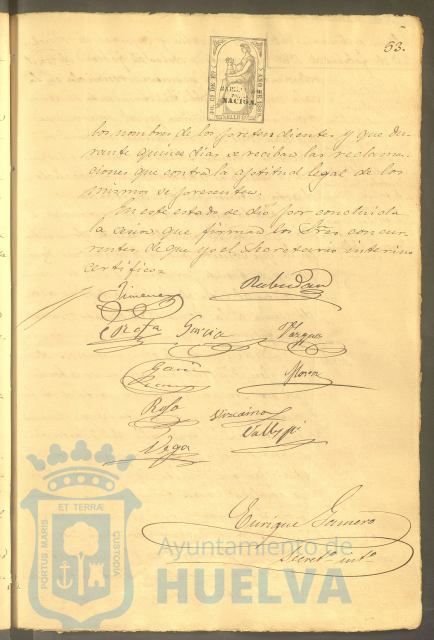 53.
NACION
los nombres de los pretendientes y que du-
rante quince dias se reciban las reclama-
ciones que contra la aptitud legal de los
mismos se presenten.
En este estado se dió por concluida
la que firman los Sres concur-
rentes de que yo el Secretario interino
certifico.
Jimenez
Rafa Garcia Vazquez
Mora
Rofo Vizcaino
Vega
Enrique Gamero
Secretº intº
ET TERRÆ
PORTUS MARIS
CUSTODIA
Ayuntamiento de
HUELVA